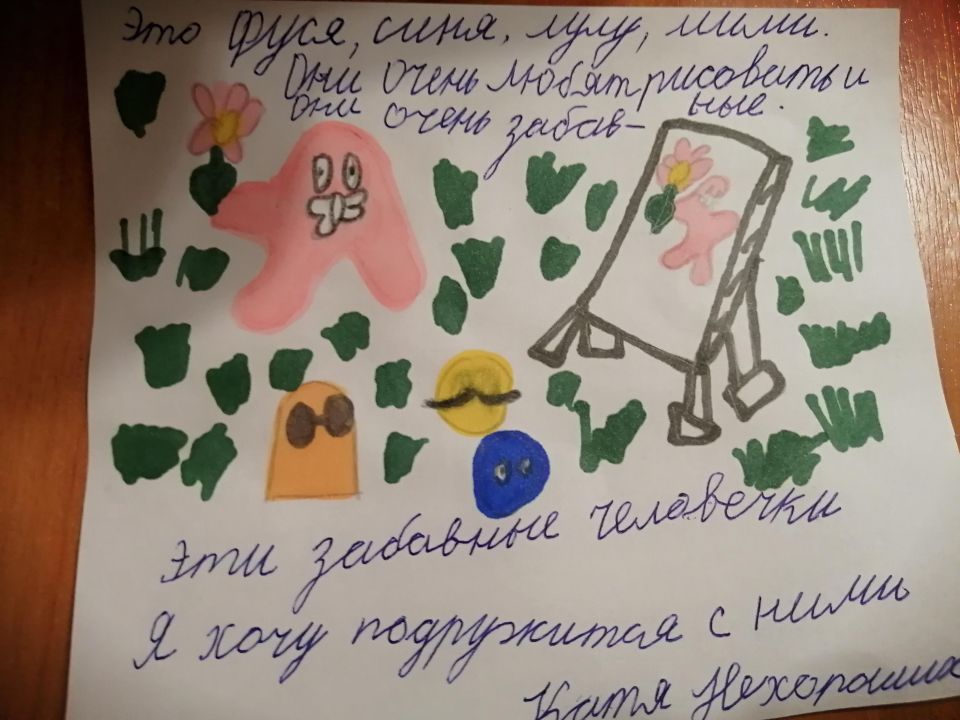 Это Фуся, синя, лулу, мими.
Они очень любят рисовать и
они очень забав- ные.
Эти забавные человечки
Я хочу подружится с ними
Катя Нехороших